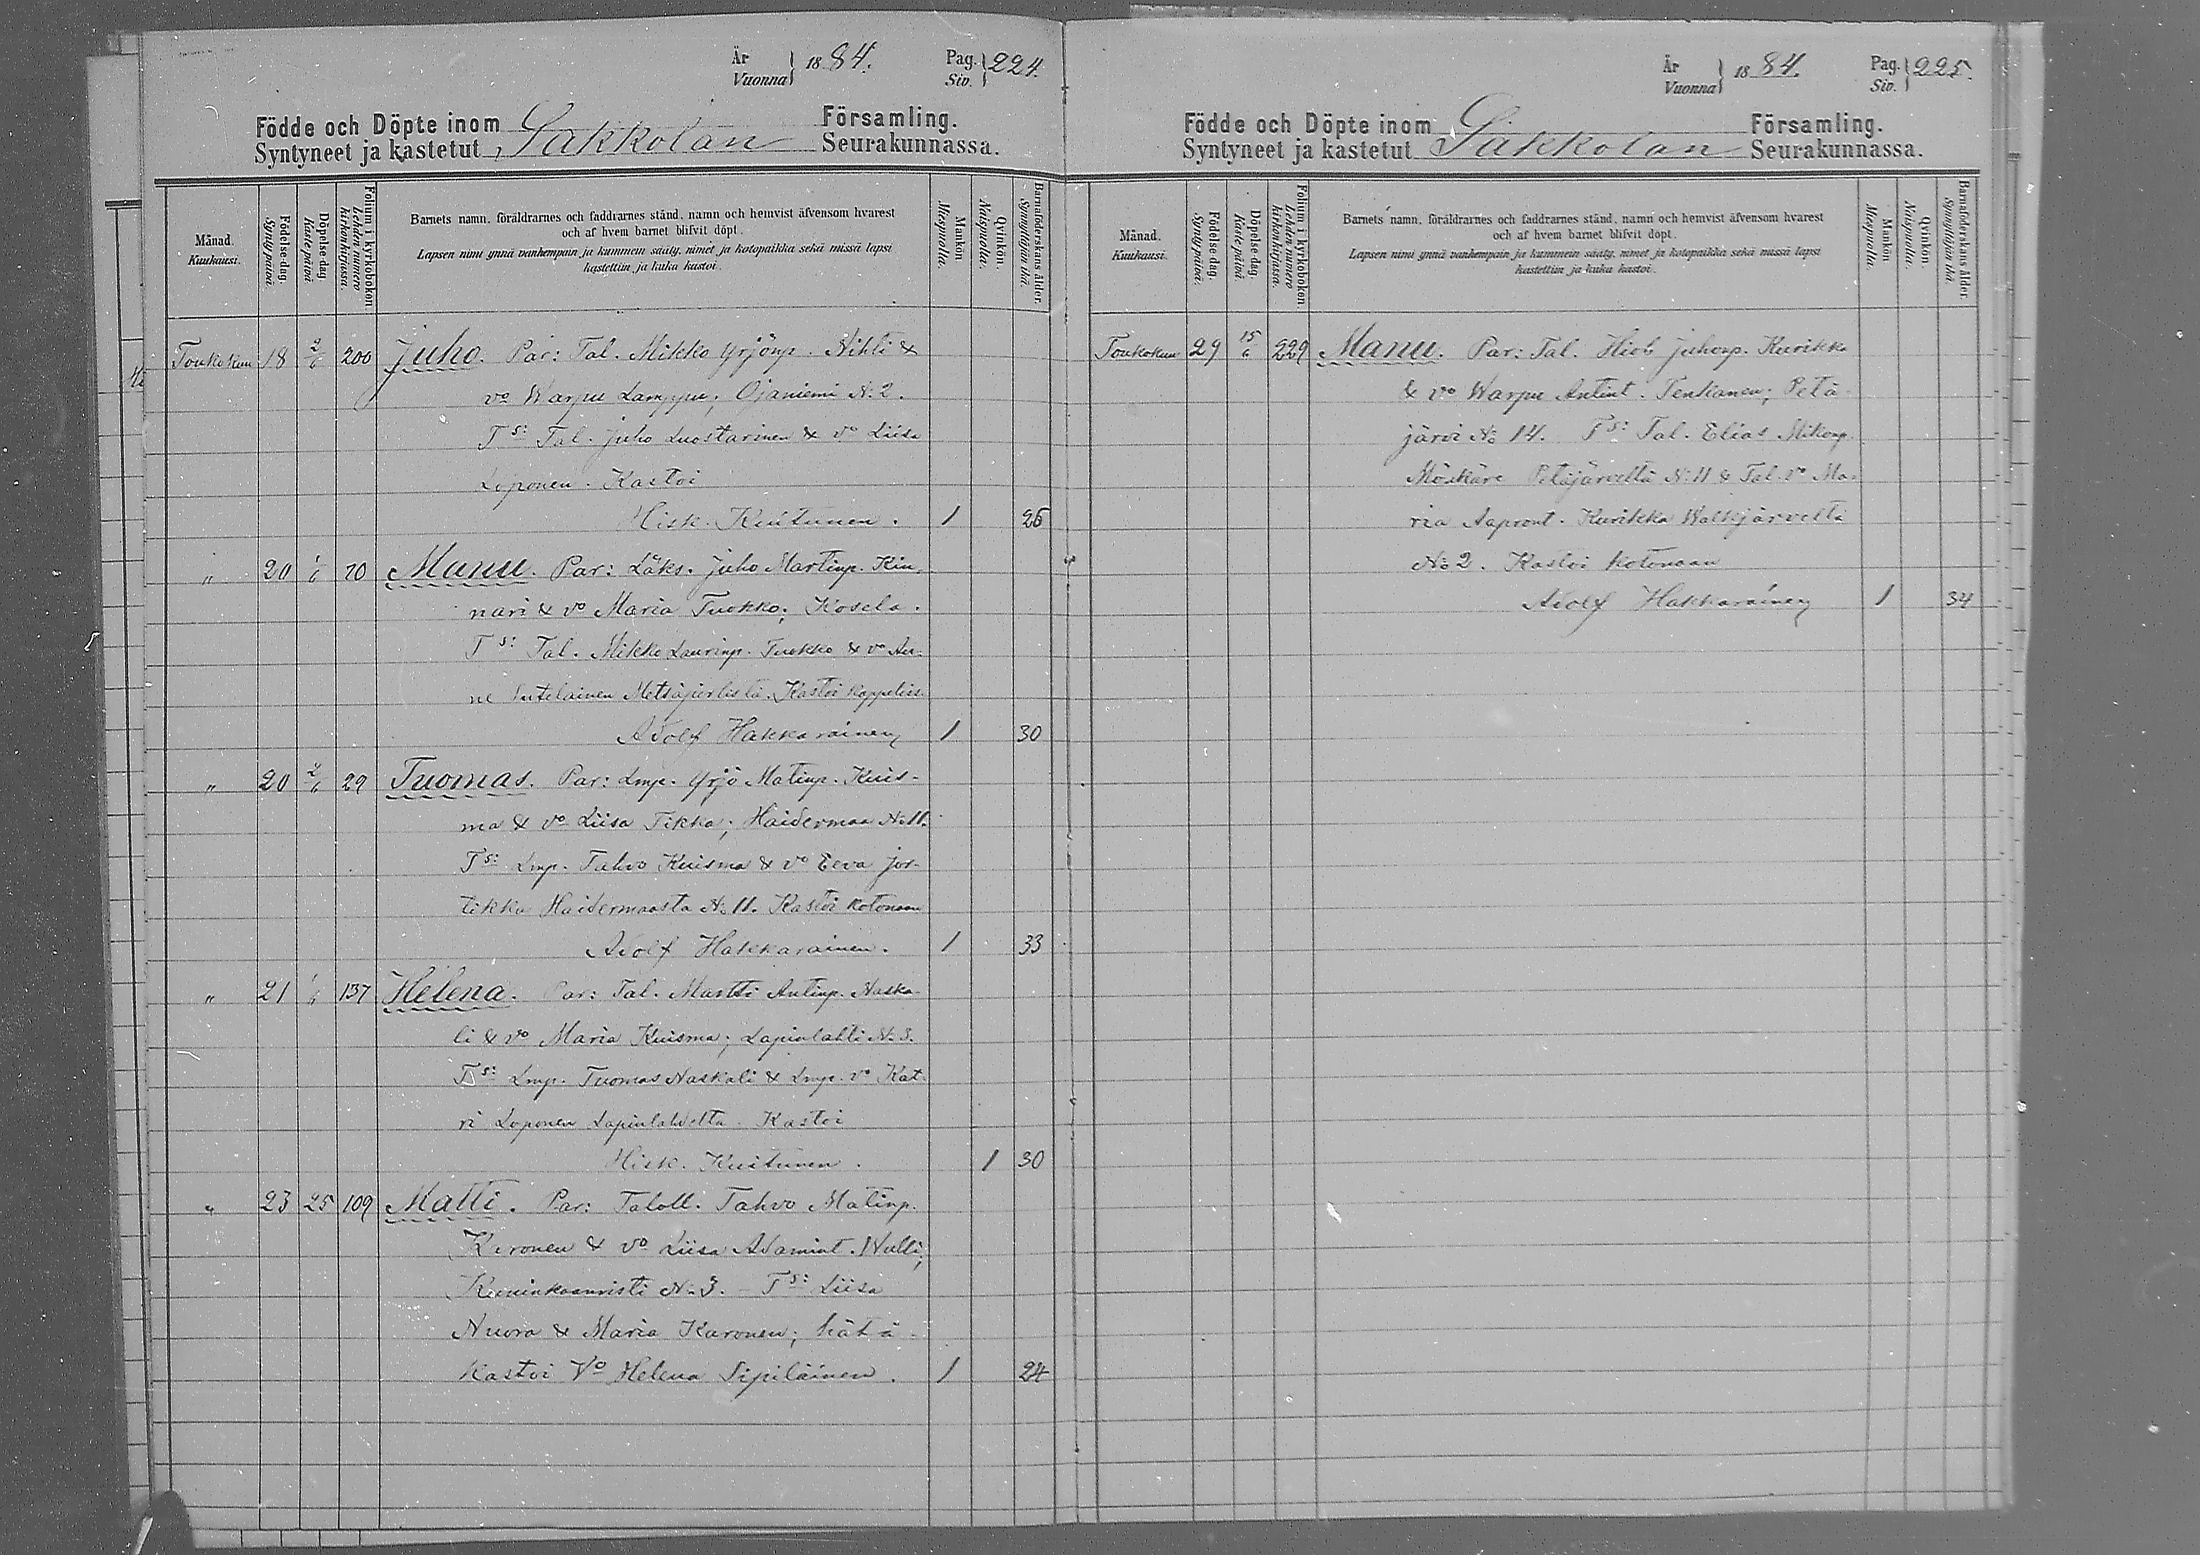 År
Vuonna } 1884. Pag.
Siv. } 224.
Födde och Döpte inom Sakkolan Församling.
Syntyneet ja kastetut Seurakunnassa.
Månad.
Kuukausi.
Födelse-dag.
Syntypäivä.
Döpelse-dag.
Kaste-päivä
Folium i kyrkoboken.
Lehden numero kirkonkirjassa.
Barnets namn, föräldrarnes och faddrarnes stånd, namn och hemvist äfvensom hvarest
och af hvem barnet blifvit döpt.
Lapsen nimi ynnä vanhempain ja kummein sääty, nimet ja kotopaikka sekä missä lapsi
kastettiin ja kuka kastoi.
Mankön
Miespuolia.
Qvinkön.
Naispuolia.
Barnaföderskans ålder.
Synnyttäjän ikä.
Toukokuu 18 2/6 200 Juho. Par: Tal. Mikko Yrjönp. Nihti &
vo Warpu Lamppu; Ojaniemi No 2.
Ts: Tal. Juho Luostarinen & vo Liisa
Loponen. Kastoi
Hisk. Kuitunen. 1 26
" 20 1/6 70 Manu. Par: Läks. Juho Martinp. Kin-
nari & vo Maria Tuokko; Kosela.
Ts: Tal. Mikko Laurinp. Tuokko & vo An-
ne Sutelainen Metsäpirtistä. Kastoi
Adolf Hakkarainen 1 30
" 20 2/6 29 Tuomas. Par: Lmp. Yrjö Matinp. Kuis-
ma & vo Liisa Tikka; Haidermaa No 11.
Ts: Lmp. Tahvo Kuisma & vo Eeva Jor-
tikka Haidermaasta No 11. Kastoi kotonaan
Adolf Hakkarainen. 1 33
" 21 1/6 137 Helena. Par: Tal. Martti Antinp. Naska-
li & vo Maria Kuisma; Lapinlahti No 3.
Ts: Lmp. Tuomas Naskali & Lmp. vo Kat-
ri Loponen Lapinlahdelta. Kastoi
Hisk. Kuitunen. 1 30
" 23 25 109 Matti. Par: Taloll. Tahvo Matinp.
Karonen & vo Liisa Adamint. Nulli;
Kuninkaanristi No 3. - Ts: Liisa
Nuora & Maria Karonen; hätä-
kastoi Vo Helena Sipiläinen. 1 24
År
Vuonna } 1884. Pag.
Siv. } 225.
Födde och Döpte inom Sakkolan Församling.
Syntyneet ja kastetut Seurakunnassa.
Månad.
Kuukausi.
Födelse-dag.
Syntypäivä.
Döpelse-dag.
Kaste-päivä.
Folium i kyrkoboken.
Lehden numero kirkonkirjassa.
Barnets namn, föräldrarnes och faddrarnes stånd, namn och hemvist äfvensom hvarest
och af hvem barnet blifvit döpt.
Lapsen nimi ynnä vanhempain ja kummein sääty, nimet ja kotopaikka sekä missä lapsi
kastettiin ja kuka kastoi.
Mankön
Miespuolia.
Qvinkön.
Naispuolia.
Barnaföderskans ålder.
Synnyttäjän ikä.
Toukokuu 29 15/6 229 Manu. Par: Tal. Hiob Juhonp. Kurikka
& vo Warpu Antint. Tenkanen; Petä-
järvi No 14. Ts: Tal. Elias Mikonp.
Möskäre Petäjärveltä No 11 & Tal. vo Ma-
ria Aapront. Kurikka Walkjärveltä
No 2. Kastoi kotonaan
Adolf Hakkarainen 1 34